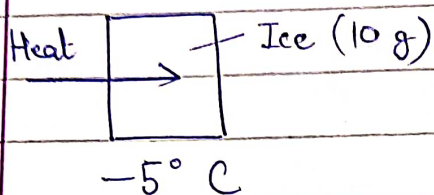 Heat
Ice (10 g)
−5° C